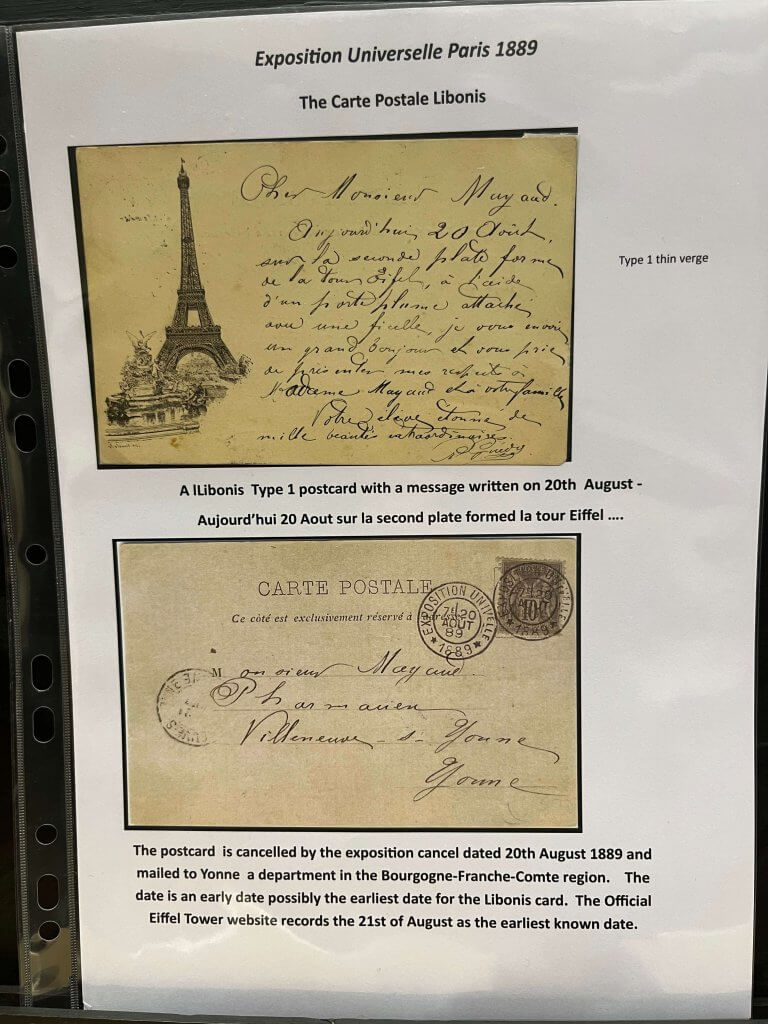 Exposition Universelle Paris 1889
The Carte Postale Libonis
Cher Monsieur Mayaud.
Aujourd'hui 20 Août,
sur la seconde plate forme
de la tour Eifel, à l'aide
d'un porte plume attaché
avec une ficelle, je vous envoie
un grand bonjour et vous prie
de présenter mes respects à
Madame Mayaud et à votre famille
Votre élève étonné de
mille beautés extraordinaires.
Type 1 thin verge
A lLibonis Type 1 postcard with a message written on 20th August -
Aujourd'hui 20 Aout sur la second plate formed la tour Eiffel ....
CARTE POSTALE
Ce côté est exclusivement réservé à
EXPOSITION UNIVELLE
20
AOUT
89
1889
10
1889
Monsieur Mayaud
Pharmacien
Villeneuve-s-Yonne
Yonne
The postcard is cancelled by the exposition cancel dated 20th August 1889 and
mailed to Yonne a department in the Bourgogne-Franche-Comte region. The
date is an early date possibly the earliest date for the Libonis card. The Official
Eiffel Tower website records the 21st of August as the earliest known date.